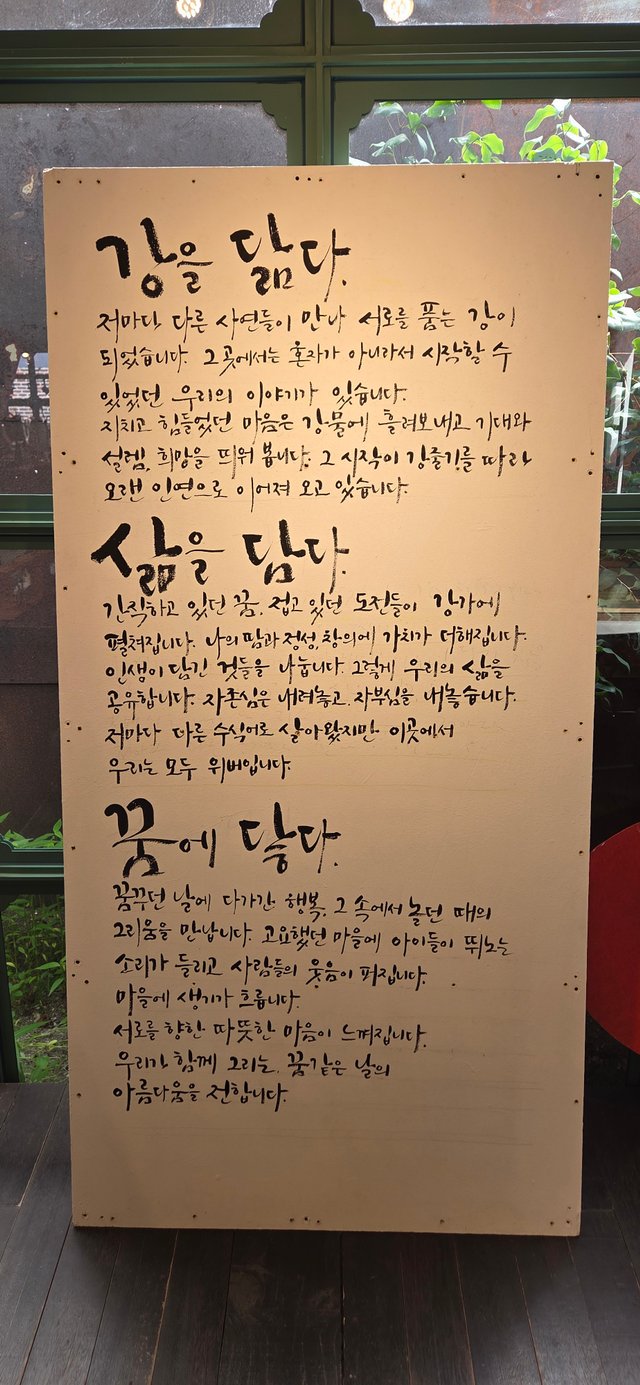 강을 닮다.
저마다 다른 사연들이 만나 서로를 품는 강이
되었습니다. 그곳에서는 혼자가 아니라서 시작할 수
있었던 우리의 이야기가 있습니다.
지치고 힘들었던 마음은 강물에 흘려보내고 기대와
설렘, 희망을 띄워 봅니다. 그 시작이 강줄기를 따라
오랜 인연으로 이어져 오고 있습니다.
삶을 담다.
간직하고 있던 꿈, 접고 있던 도전들이 강가에
펼쳐집니다. 나의 땀과 정성, 창의에 가치가 더해집니다.
인생이 담긴 것들을 나눕니다. 그렇게 우리의 삶을
공유합니다. 자존심은 내려놓고, 자부심을 내놓습니다.
저마다 다른 수식어로 살아왔지만 이곳에서
우리는 모두 위버입니다.
꿈에 닿다.
꿈꾸던 날에 다가간 행복, 그 속에서 놀던 때의
그리움을 만납니다. 고요했던 마을에 아이들이 뛰노는
소리가 들리고 사람들의 웃음이 퍼집니다.
마을에 생기가 흐릅니다.
서로를 향한 따뜻한 마음이 느껴집니다.
우리가 함께 그리는, 꿈같은 날의
아름다움을 전합니다.